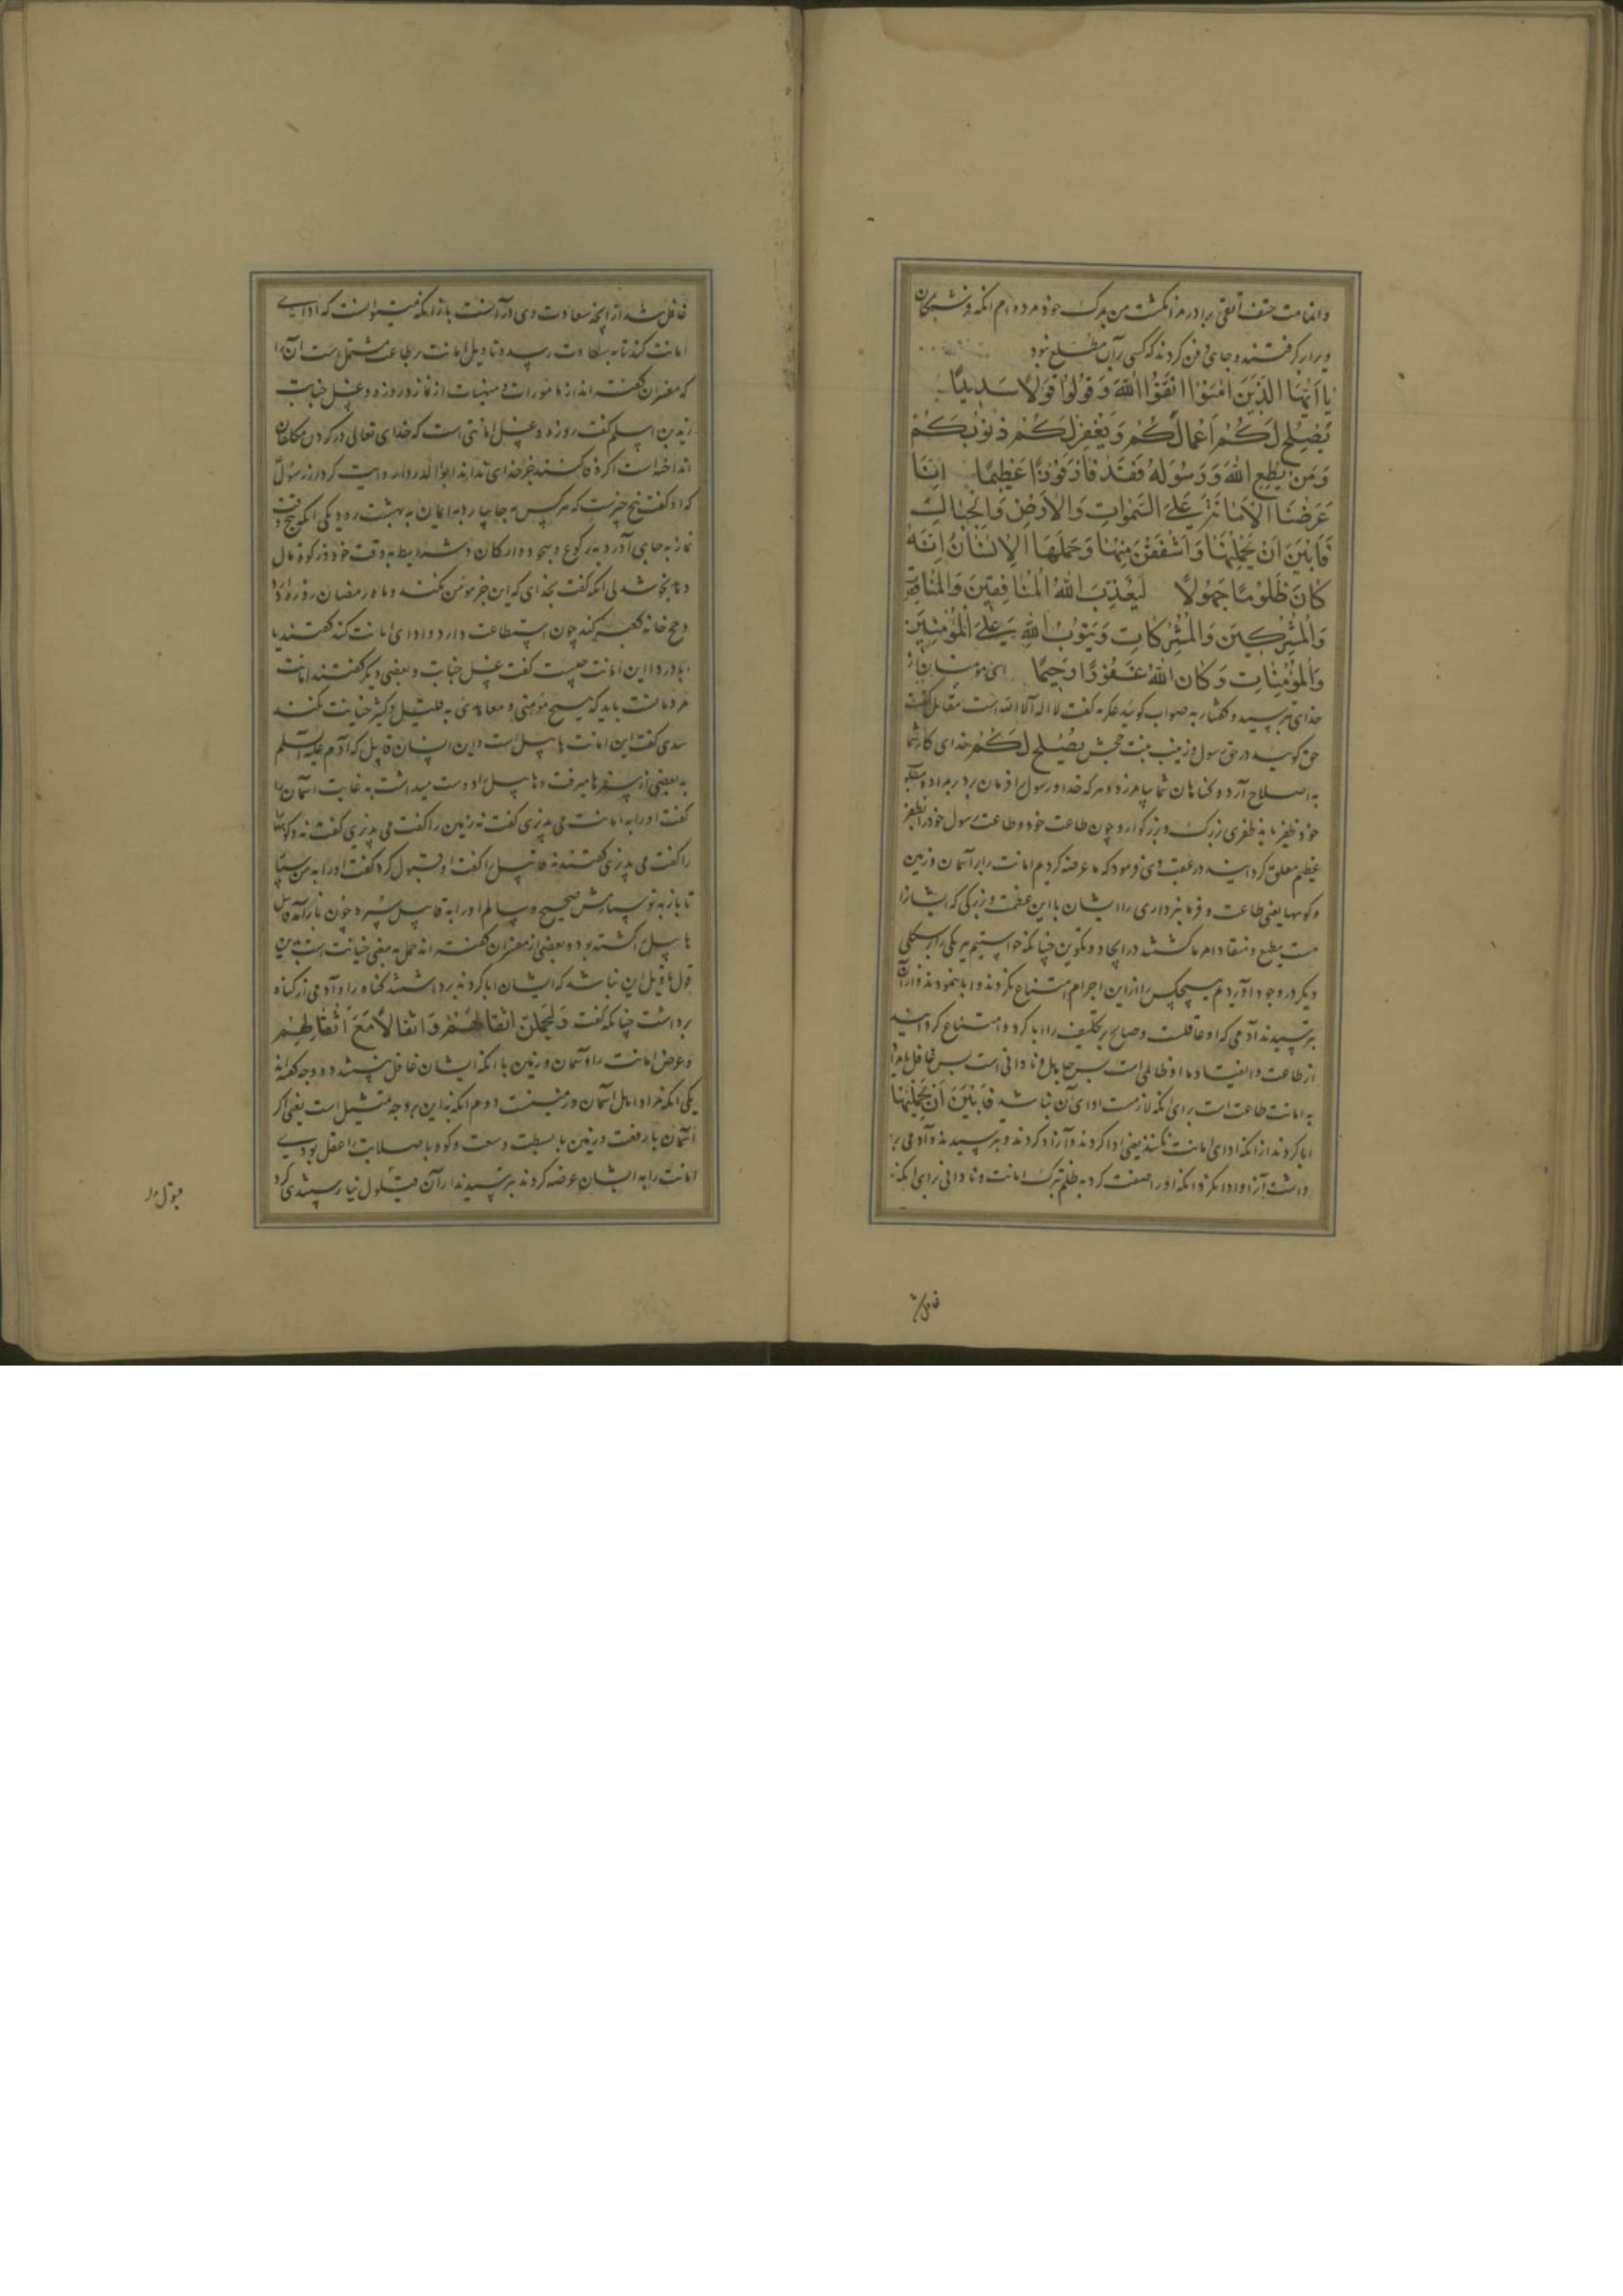 یا ایها الذین امنوا اتقوا الله و قولوا قولا سدیدا
یصلح لکم اعمالکم و یغفر لکم ذنوبکم
و من یطع الله و رسوله فقد فاز فوزا عظیما انا
عرضنا الامانة علی السموات و الارض و الجبال
فابین ان یحملنها و اشفقن منها و حملها الانسان انه
کان ظلوما جهولا لیعذب الله المنافقین و المنافقات
و المشرکین و المشرکات و یتوب الله علی المؤمنین
و المؤمنات و کان الله غفورا رحیما ای مؤمنان از
خدای بترسید و گفتار به صواب گوئید عکرمه گفت لا اله الا الله است مقاتل گفت
حق گوئید در حق رسول و زینب بنت جحش یصلح لکم خدای کار شما
به اصلاح آرد و گناهان شما بیامرزد و هر که خدا و رسول را فرمان برد
خود ظفر یابد ظفری بزرگ و بزرگوار و چون طاعت خود و طاعت رسول خود را
عظیم معلق گردانید در عقب وی فرمود که ما عرضه کردیم امانت را بر آسمان و زمین
و کوهها یعنی طاعت و فرمانبرداری را ایشان با این عظمت و بزرگی که ایشانرا
مطیع و منقاد امر ما گشتند در ایجاد و تکوین چنانکه خواستیم هر یکی را بر شکلی
دیگر در وجود آوردیم هیچکس را از این اجرام امتناع نکردند و ابا ننمودند و از آن
بترسیدند آدمی که او عاقلست و صالح بر تکلیف را ابا کرد و امتناع گردانید
به امانت طاعت است برای آنکه لازمست ادای آن فابین ان یحملنها
ابا کردند از آنکه ادای امانت نکنند یعنی ادا کردند و آزاد کردند و بترسیدند و آدمی بر
داشت آنرا و ادا نکرد آنکه او را صفت کرد به ظلم بترک امانت و نادانی برای آنکه
غافل شد از آنچه سعادت وی در آنست
امانت کند تا به سعادت رسد و تاویل امانت بطاعت مشتمل است آن را
که مفسران گفته اند از مامورات و منهیات از نماز و روزه و غسل جنابت
زید بن اسلم گفت روزه و غسل امانتی است که خدای تعالی در گردن مکلفان
انداخته است
که او گفت پنج چیزست که هر کس به جا آرد به ایمان به بهشت رود یکی آنکه پنج وقت
نماز به جای آورد به رکوع و سجود و ارکان و شرایط به وقت خود و زکوة مال
و ماه رمضان روزه دارد
و حج خانه کعبه کند چون استطاعت دارد و ادای امانت کند گفتند یا
ابا دردا این امانت چیست گفت غسل جنابت و بعضی دیگر گفتند امانت
مردمانست باید که هیچ مؤمنی و معاهدی به قلیل و کثیر خیانت نکند
سدی گفت این امانت هابیل است و این انسان قابیل که آدم علیه السلم
به بعضی از سفرها میرفت و هابیل را دوست میداشت به غایت آسمان را
گفت او را به امانت می پذیری گفت نه زمین را گفت می پذیری گفت نه و کوهها
را گفت می پذیری گفتند نه قابیل را گفت او قبول کرد گفت او را به من سپار
تا باز به تو سپارمش صحیح و سالم او را به قابیل سپرد چون باز آمد قابیل
هابیل را کشته بود و بعضی از مفسران گفته اند حمل به معنی خیانت است بدین
قول تاویل این باشد که ایشان ابا کردند برداشتند گناه را و آدمی از گناه
برداشت چنانکه گفت و لیحملن اثقالهم و اثقالا مع اثقالهم
و عرض امانت را و آسمان و زمین با آنکه ایشان عاقل نیستند دو وجه گفته اند
یکی آنکه مراد اهل آسمان و زمینست دوم آنکه به این بر وجه تمثیل است یعنی اگر
آسمان با رفعت و زمین با بسطت و سعت و کوه با صلابت را عقل بودی
امانت را به ایشان عرضه کردند بترسیدند از آن